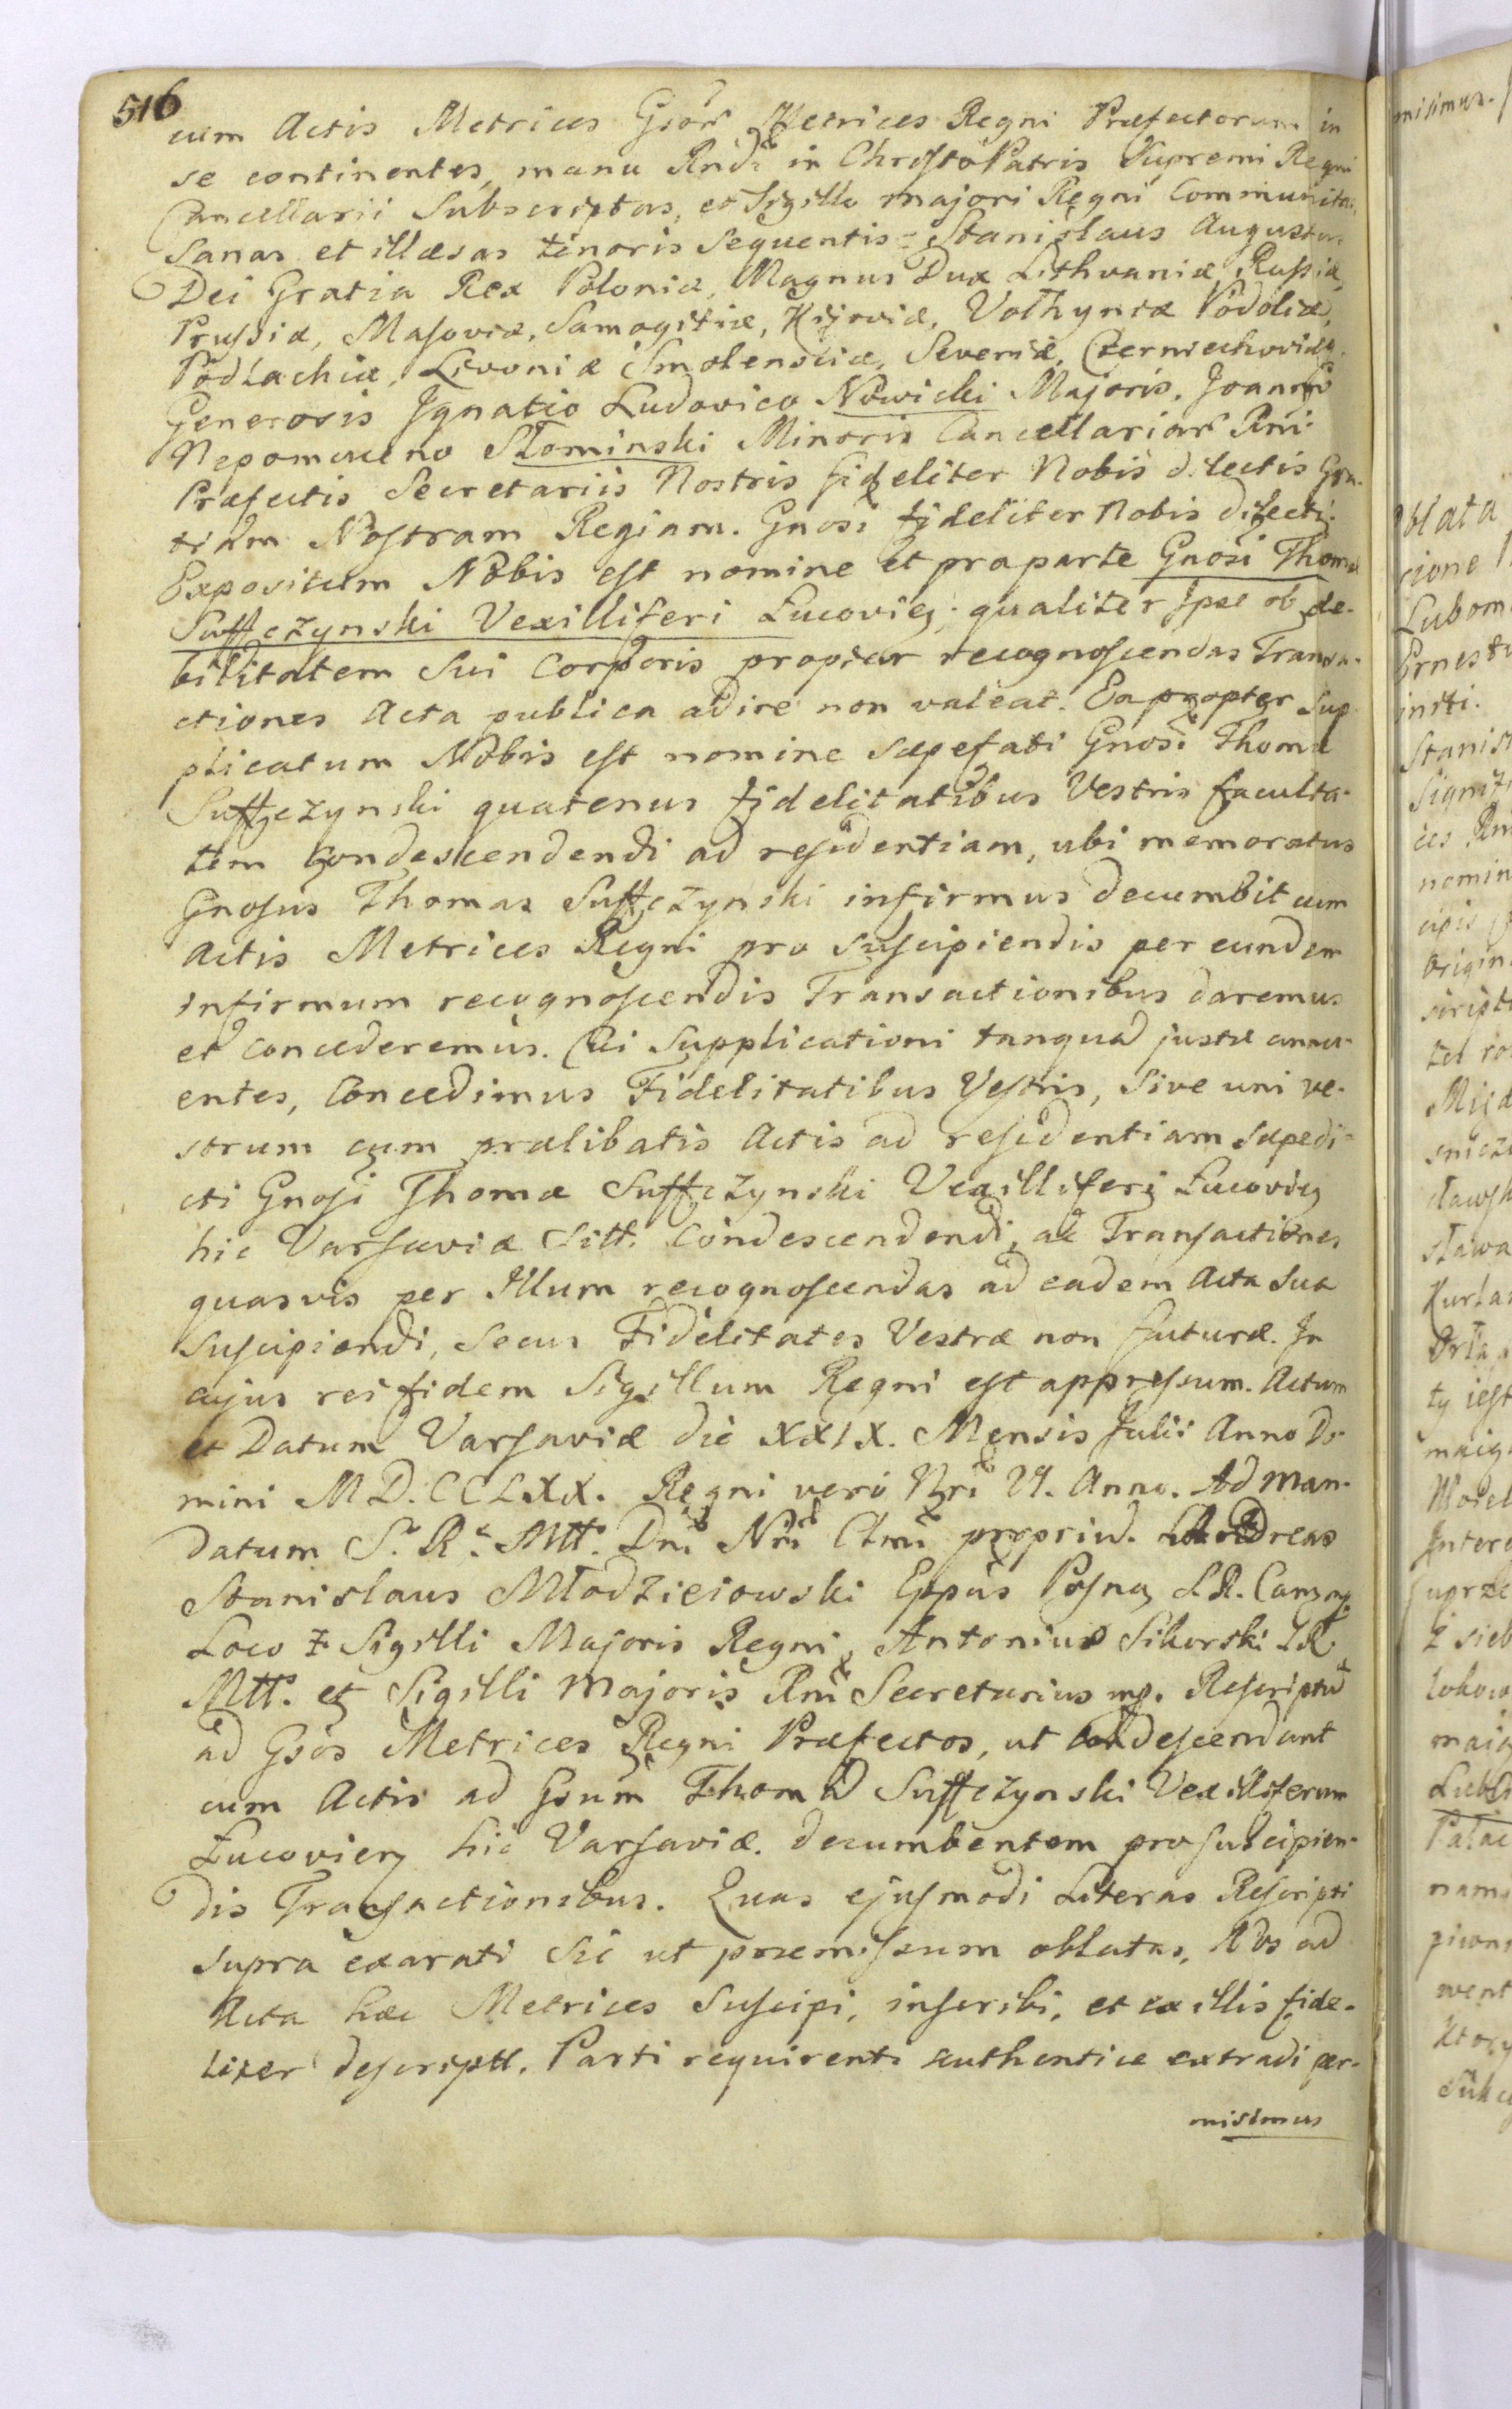 516
cum Actis Metrices Gsor Metrices Regni Præfectorum in
se continentes, manu Rndi in Christo Patris Supremi Regni
Cancellarii Subscriptas, et Sigillo majori Regni Communitas,
Sanas et illæsas tenoris Sequentis = Stanislaus Augustus
Dei Gratia Rex Poloniæ, Magnus Dux Lithvaniæ, Russiæ,
Prussiæ, Masoviæ, Samogitiæ, Kijoviæ, Volhyniæ Podoliæ,
Podlachiæ, Livoniæ Smolensciæ, Severiæ, Czerniechoviæq
Generosis Ignatio Ludovico Nowicki Majoris, Joanni
Nepomuceno Słominski Minoris Cancellariar Rni
Præfectis Secretariis Nostris fideliter Nobis dilectis Gra-
tiam Nostram Regiam. Gnosi fideliter Nobis dilecti.
Expositum Nobis est nomine et pro parte Gnosi Thomæ
Suffczynski Vexilliferi Łucovien; qualiter Ipse ob de-
bilitatem Sui Corporis propter recognoscendas Transa-
ctiones Acta publica adire non valeat. Ea propter Sup
plicatum Nobis est nomine sæpefati Gnosi Thomæ
Suffczynski quatenus fidelitatibus Vestris faculta-
tem Condescendendi ad residentiam, ubi memoratus
Gnosus Thomas Suffczynski infirmus decumbit cum
Actis Metrices Regni pro suscipiendis per eundem
infirmum recognoscendis Transactionibus daremus
et concederemus. Cui Supplicationi tanquã justæ annu-
entes, Concedimus Fidelitatibus Vestris, Sive uni ve-
strum cum prælibatis Actis ad residentiam sæpedi-
cti Gnosi Thomæ Suffczynski Vexilliferi Łucovien
hic Varsaviæ Sitt. Condescendendi, ac Transactiones
quasvis per Illum recognoscendas ad eadem Acta Sua
Suscipiendi, Secus Fidelitates Vestræ non futuræ. In
cujus rei fidem Sigillum Regni est appressum. Actum
et Datum Varsaviæ die XXIX. Mensis Julii Anno Do-
mini MD.CCLXX. Regni vero Nri VI. Anno. Ad man-
datum S. R. Mtt. Dni Nri Clmi propriũ. Andreas
Stanislaus Młodzieiowski Eppus Posna S.R. Canc mp.
Loco ‡ Sigilli Majoris Regni, Antonius Sikorski S.R.
Mtt. et Sigilli Majoris Rni Secretarius mp. Rescriptũ
ad Gsos Metrices Regni Præfectos, ut condescendant
cum Actis ad Gsum Thomã Suffczynski Vexilliferum
Łucovien hic Varsaviæ decumbentem pro suscipien-
dis Transactionibus. Quas ejusmodi Literas Rescripti
supra exarati Sic ut præmissum oblatas, Nos ad
Acta hæc Metrices Suscipi, inscribi, et ex illis fide-
liter descriptt. Parti requirenti authentice extradi per-
misimus
misimus.
blata
cione
Lubom
Ernestu
insti.
Stanis
Signif
ces
nomin
cipis
Origin
script
tel ro
sławsk
sława
Kurla
ty iest
maig
Intere
uprze
z sieb
łokow
maia
Lubl
Pałac
nami
went